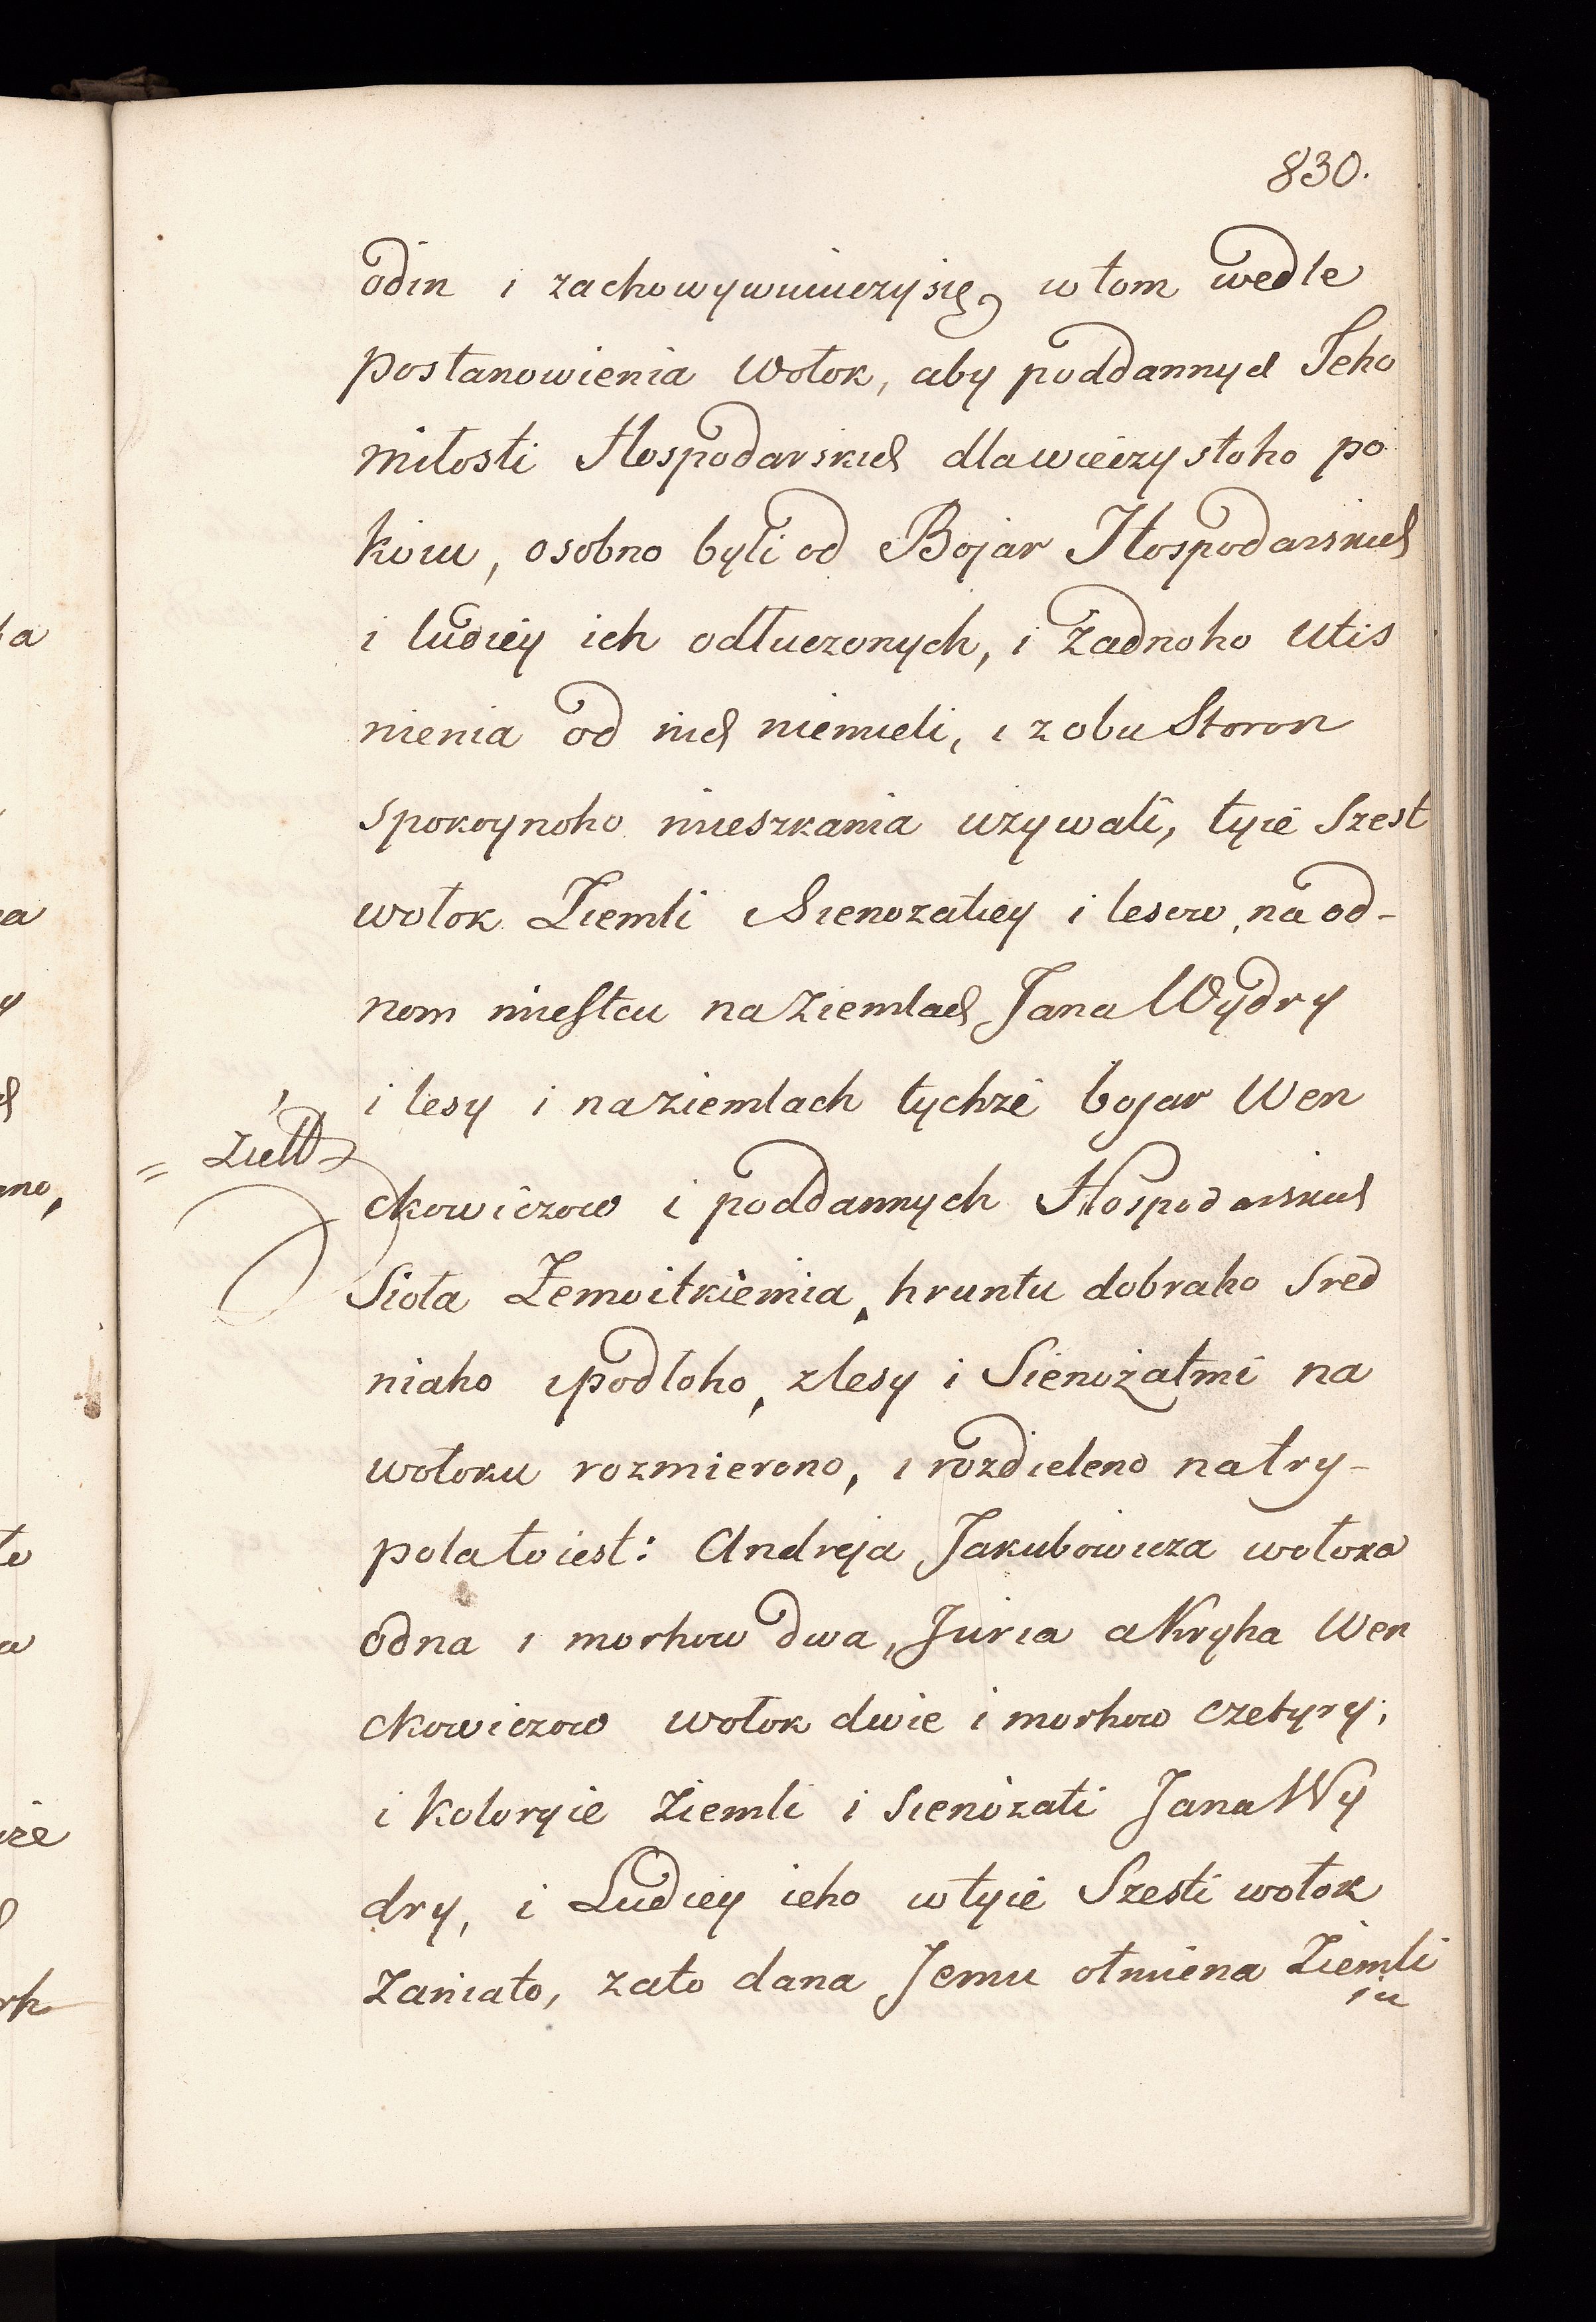 830.
odin i zachowywuiuczysię, w tom wedle
postanowienia Wołok, aby poddannych Jeho
miłosti Hospodarskich dla wieczystoho po
koiu, osobno byli od Bojar Hospodarskich
i ludiey ich odłuczonych, i żadnoho utis
nienia od nich niemieli, i z obu Storon
spokoynoho mieszkania używali, tyie Szest
wołok Ziemli i Sienożatiey i lesow, na od-
nom miestcu na Ziemlach Jana Wydry
i lesy i na ziemlach tychże bojar Wen
ckowiczow i poddannych Hospodarskich
Sioła Żemoitkiemia, hruntu dobraho Sred
niaho i podłoho, z lesy i Sienożatmi na
wołoku rozmiereno, i rozdieleno na try-
pola to iest: Andreja Jakubowicza wołoka
odna i morhow dwa, Juria a Kryha Wen
ckowiczow wołok dwie i morhow czetyry;
i kotoryie Ziemli i sienożati Jana Wy
dry, i Ludiey ieho w tyie Szesti wołok
Zaniato, za to dana Jemu otmiena Ziemli